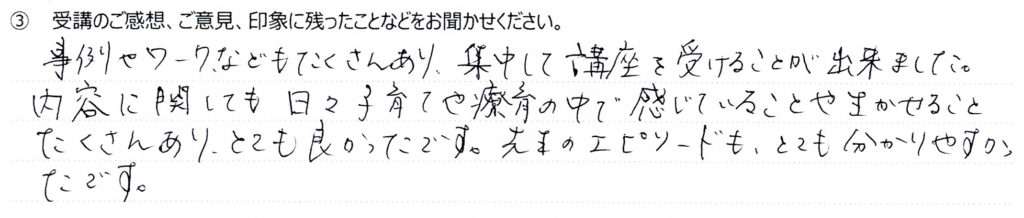 ③ 受講のご感想、ご意見、印象に残ったことなどをお聞かせください。
事例やワークなどもたくさんあり、集中して講座を受けることが出来ました。
内容に関しても日々子育てや療育の中で感じていることや生かせること
たくさんあり、とても良かったです。先生のエピソードも、とても分かりやすかっ
たです。